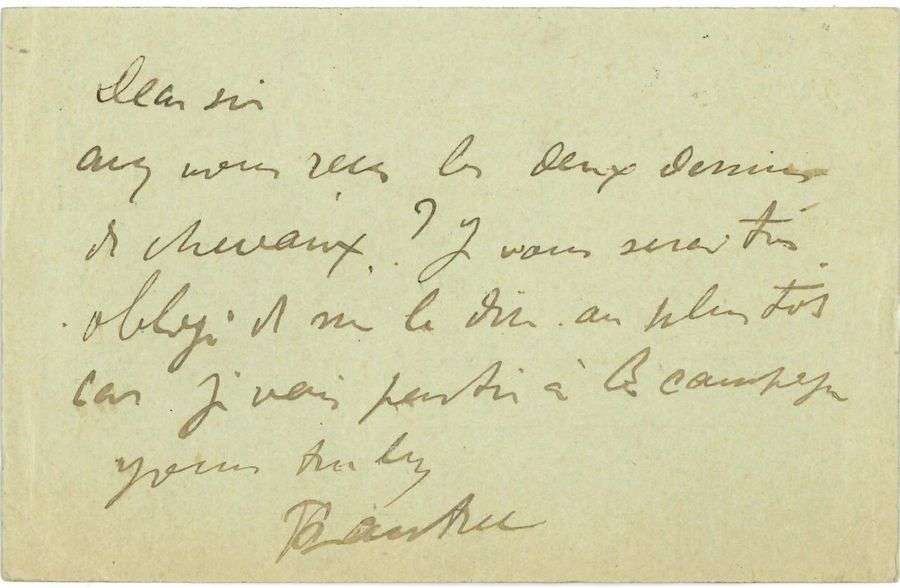 Dear sir
avez vous reçu les deux dessins
de chevaux ? Je vous serai très
obligé de me le dire au plus tôt
car je vais partir à la campagne
yours truly
HLautrec